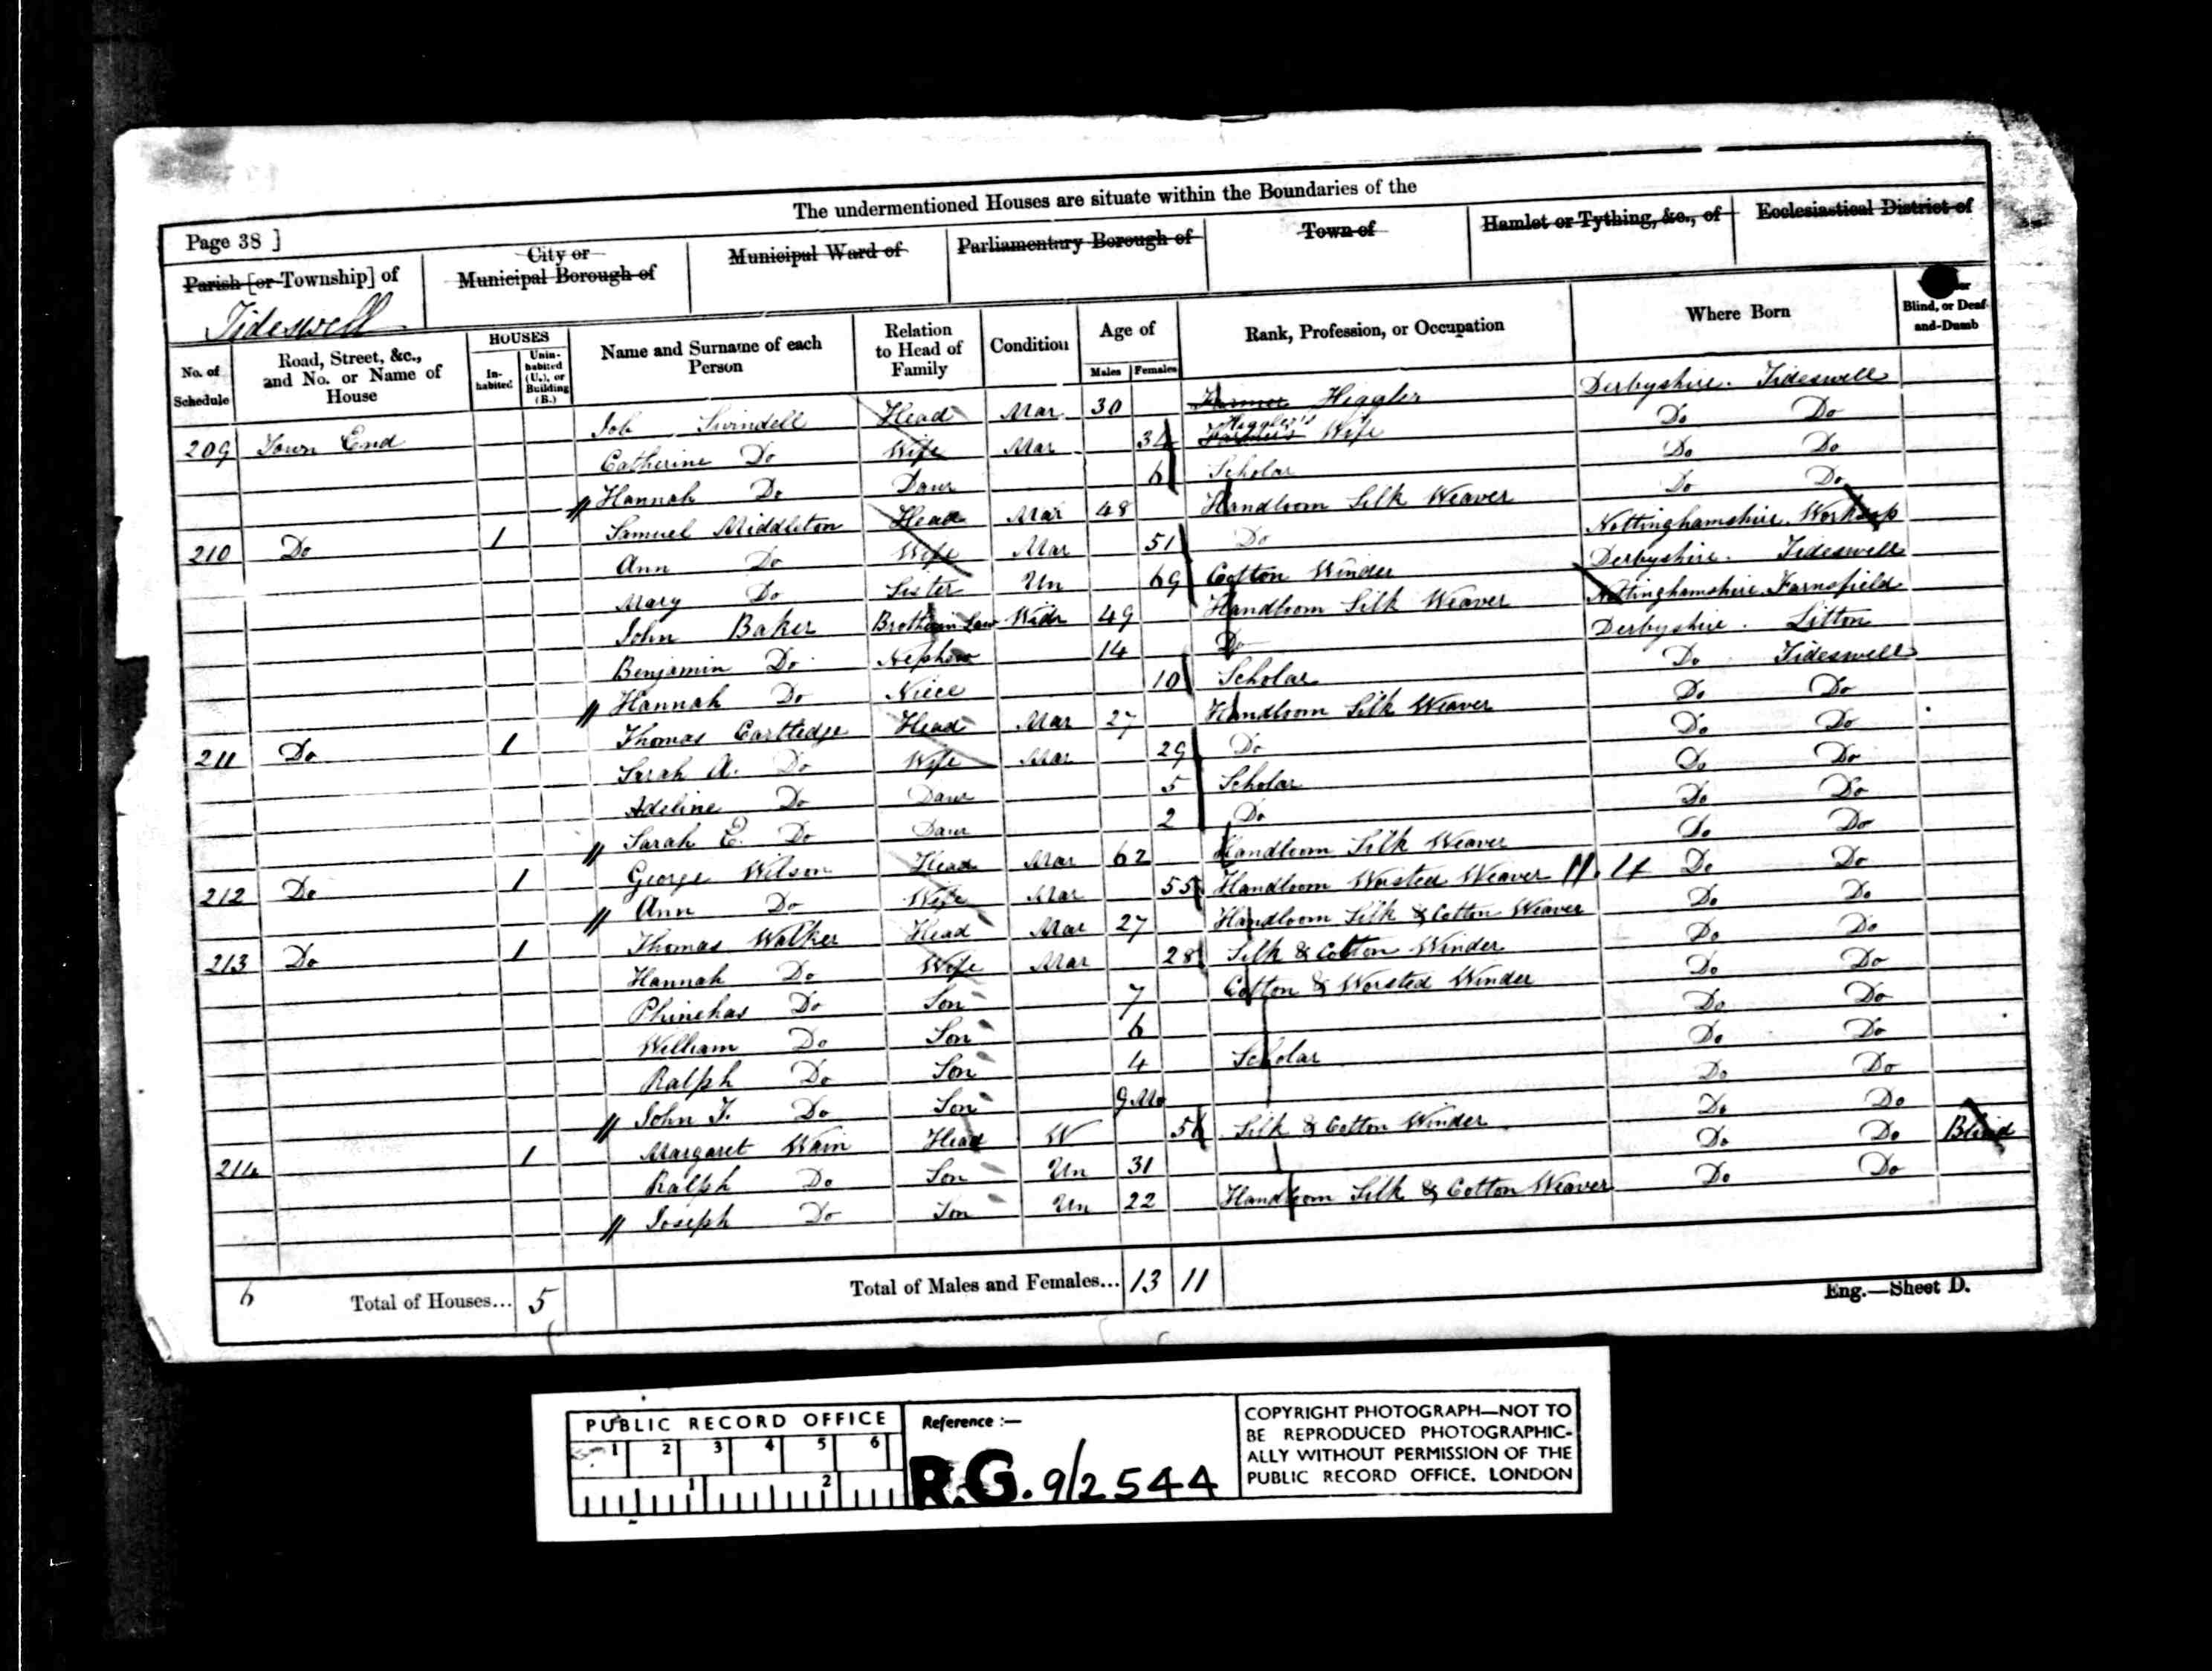 The undermentioned Houses are situate within the Boundaries of the
Page 38 ]
Parish [or Township] of
Tideswell
City or
Municipal Borough of
Municipal Ward of
Parliamentary Borough of
Town of
Hamlet or Tything, &c., of
Ecclesiastical District of
No. of Schedule
Road, Street, &c., and No. or Name of House
HOUSES
In-habited
Unin-habited (U.), or Building (B.)
Name and Surname of each Person
Relation to Head of Family
Condition
Age of
Males
Females
Rank, Profession, or Occupation
Where Born
Blind, or Deaf-and-Dumb
209 Town End Job Swindell Head Mar 30 Farmer Higgler Derbyshire. Tideswell
Catherine Do Wife Mar 34 Farmer's Higgler's Wife Do Do
// Hannah Do Daur 6 Scholar Do Do
210 Do 1 Samuel Middleton Head Mar 48 Handloom Silk Weaver Do Do
Ann Do Wife Mar 51 Do Nottinghamshire. Worksop
Mary Do Sister Un 69 Cotton Winder Derbyshire. Tideswell
John Baker Brother in Law Widr 49 Handloom Silk Weaver Nottinghamshire. Farnsfield
Benjamin Do Nephew 14 Do Derbyshire. Litton
// Hannah Do Niece 10 Scholar Do Tideswell
211 Do 1 Thomas Carttedge Head Mar 27 Handloom Silk Weaver Do Do
Sarah A. Do Wife Mar 29 Do Do Do
Adeline Do Daur 5 Scholar Do Do
// Sarah E. Do Daur 2 Do Do Do
212 Do 1 George Wilson Head Mar 62 Handloom Silk Weaver Do Do
// Ann Do Wife Mar 55 Handloom Worsted Weaver Do Do
213 Do 1 Thomas Walker Head Mar 27 Handloom Silk & Cotton Weaver Do Do
Hannah Do Wife Mar 28 Silk & Cotton Winder Do Do
Phinehas Do Son 7 Cotton & Worsted Winder Do Do
William Do Son 6 Do Do
Ralph Do Son 4 Scholar Do Do
// John T. Do Son 9 Mo Do Do
214 1 Margaret Wain Head W 56 Silk & Cotton Winder Do Do
Ralph Do Son Un 31 Do Do Blind
// Joseph Do Son Un 22 Handloom Silk & Cotton Weaver Do Do
6 Total of Houses... 5 Total of Males and Females... 13 11
Eng.—Sheet D.
PUBLIC RECORD OFFICE
1 2 3 4 5 6
1 2
Reference :—
R.G. 9/2544
COPYRIGHT PHOTOGRAPH—NOT TO
BE REPRODUCED PHOTOGRAPHIC-
ALLY WITHOUT PERMISSION OF THE
PUBLIC RECORD OFFICE, LONDON